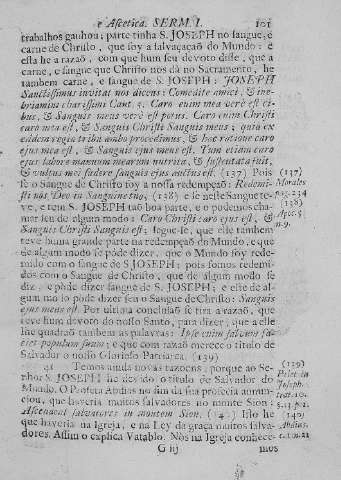 e Ascetica. SERM. I. 101
trabalhos ganhou; parte tinha S. JOSEPH no sangue, e
carne de Christo, que foy a salvaçaçaõ do Mundo: e
essa he a razaõ, com que hum seu devoto disse, que a
carne, e sangue que Christo nos dá no Sacramento, he
tambem carne, e sangue de S. JOSEPH: JOSEPH
Sanctissimus invitat nos dicens: Comedite amici, & ine-
briamini charissimi Cant. 5. Caro enim mea verè est ci-
bus, & Sanguis meus verè est potus. Caro enim Christi
caro mea est, & Sanguis Christi Sanguis meus; quia ex
eâdem regia tribu ambo procedimus, & hac ratione caro
ejus mea est, & Sanguis ejus meus est. Tum etiam caro
ejus labore manuum mearum nutrita, & sustentata fuit,
& vultus mei sudore sanguis ejus auctus est. (137) Pois (137)
se o Sangue de Christo foy a nossa redempçaõ: Redemi- Morales
sti nos Deo in Sanguine tuo, (138) e se nesse Sangue te- (138)
ve, e tem S. JOSEPH taõ boa parte, e o podemos cha- Apoc. 5
mar seu de algum modo: Caro Christi caro ejus est, & n. 9.
Sanguis Christi Sanguis est; segue-se, que elle tambem
teve huma grande parte na redempçaõ do Mundo, e que
de algum modo se póde dizer, que o Mundo foy rede-
mido com o sangue de S. JOSEPH; pois fomos redemi-
dos com o Sangue de Christo, que de algum modo se
diz, e póde dizer sangue de S. JOSEPH; e este de al-
gum modo póde dizer seu o Sangue de Christo: Sanguis
ejus meus est. Por ultima conclusaõ se tira a razaõ, que
teve hum devoto do nosso Santo, para dizer, que a elle
lhe quadraõ tambem as palavras: Ipse enim salvum fa-
ciet populum suum; e que com razaõ merece o titulo de
Salvador o nosso Glorioso Patriarca. (139)
Temos ainda novas razoens, porque ao Se- (139)
nhor S. JOSEPH he devido o titulo de Salvador do
Mundo. O Profeta Abdias no fim da sua profecia annun-
ciou, que haveria muitos salvadores no monte Sion:
Ascendent salvatores in montem Sion. (140) Isso he (140)
que haveria na Igreja, e na Ley da graça muitos salva- Abdias.
dores. Assim o explica Vatablo. Nòs na Igreja conhece- c. 1. n. 21
G iij mos